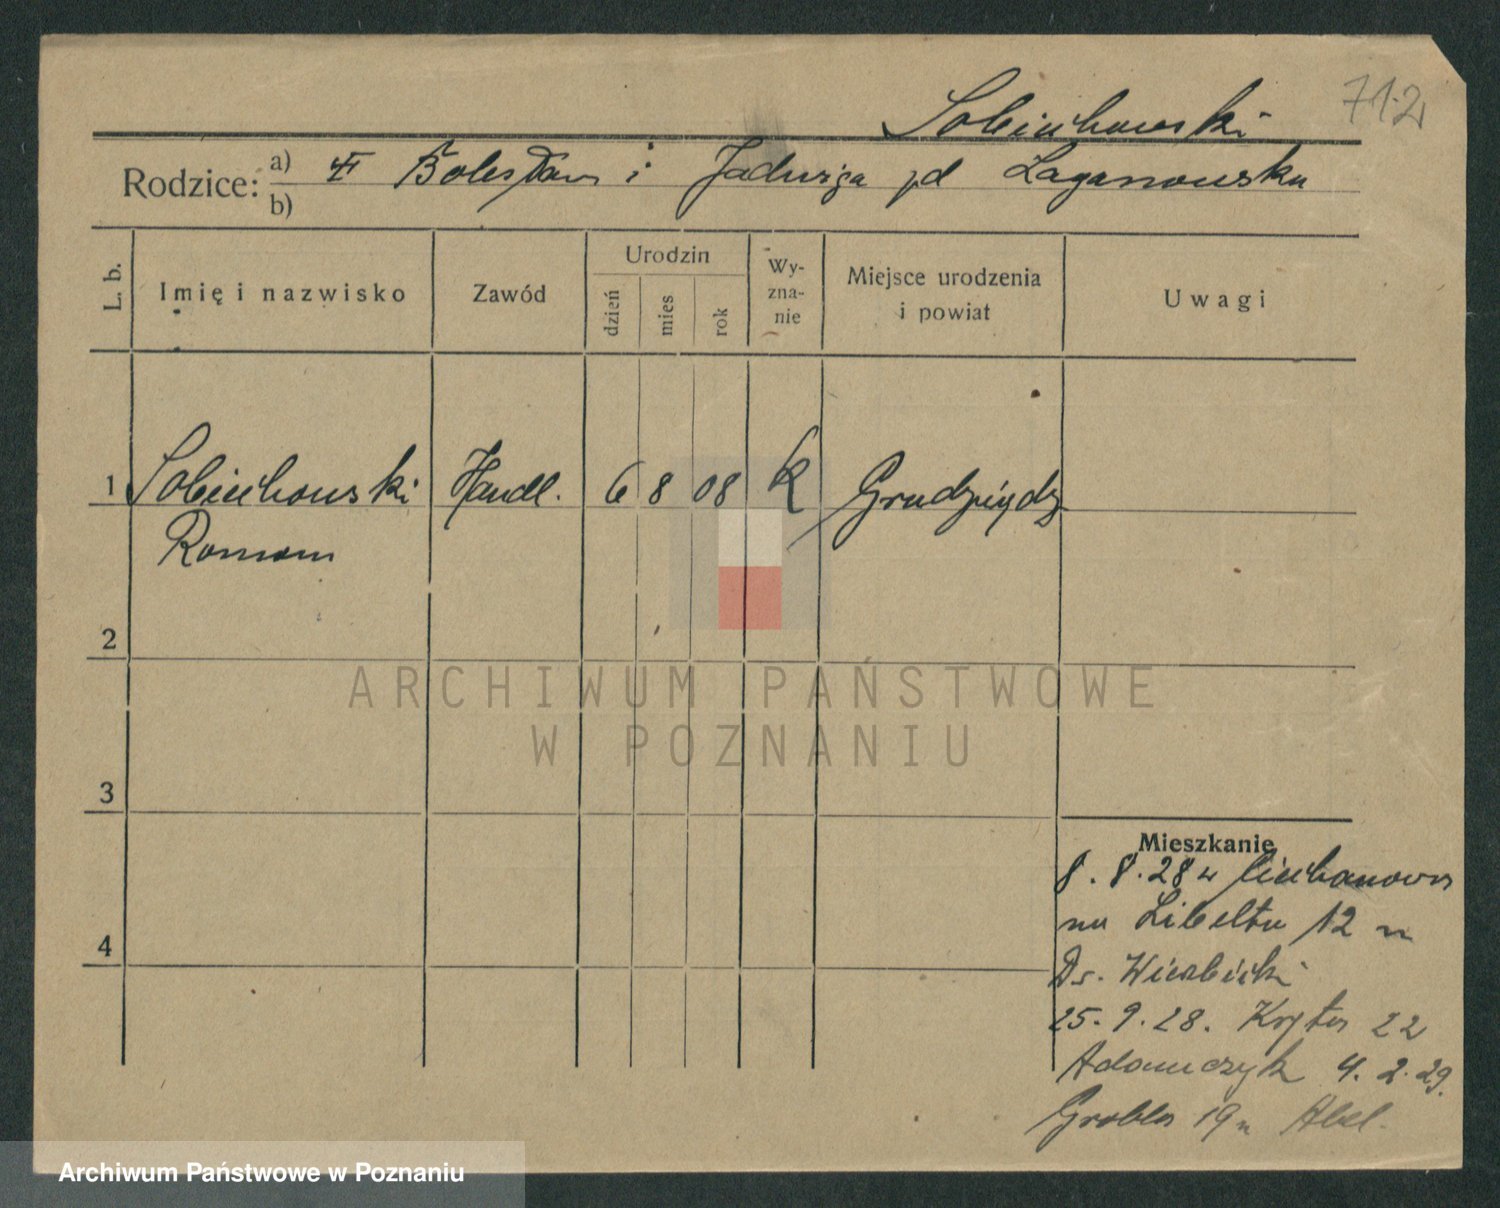 712
Sobiechowski
Rodzice: a) Bolesław i Jadwiga zd Łaganowska
b)
L. b.
Imię i nazwisko
Zawód
Urodzin
dzień
mies
rok
Wy-
zna-
nie
Miejsce urodzenia
i powiat
Uwagi
1 Sobiechowski Handl. 6 8 08 k Grudziądz
Roman
2
3
4
ARCHIWUM PAŃSTWOWE
W POZNANIU
Mieszkanie
8.8.28 z Ciechanowa
na Libelta 12 u
Ds. Wierzbicki
25.9.28. Kryta 22
Adamczyk 4.2.29.
Grobla 19 u Abel.
Archiwum Państwowe w Poznaniu